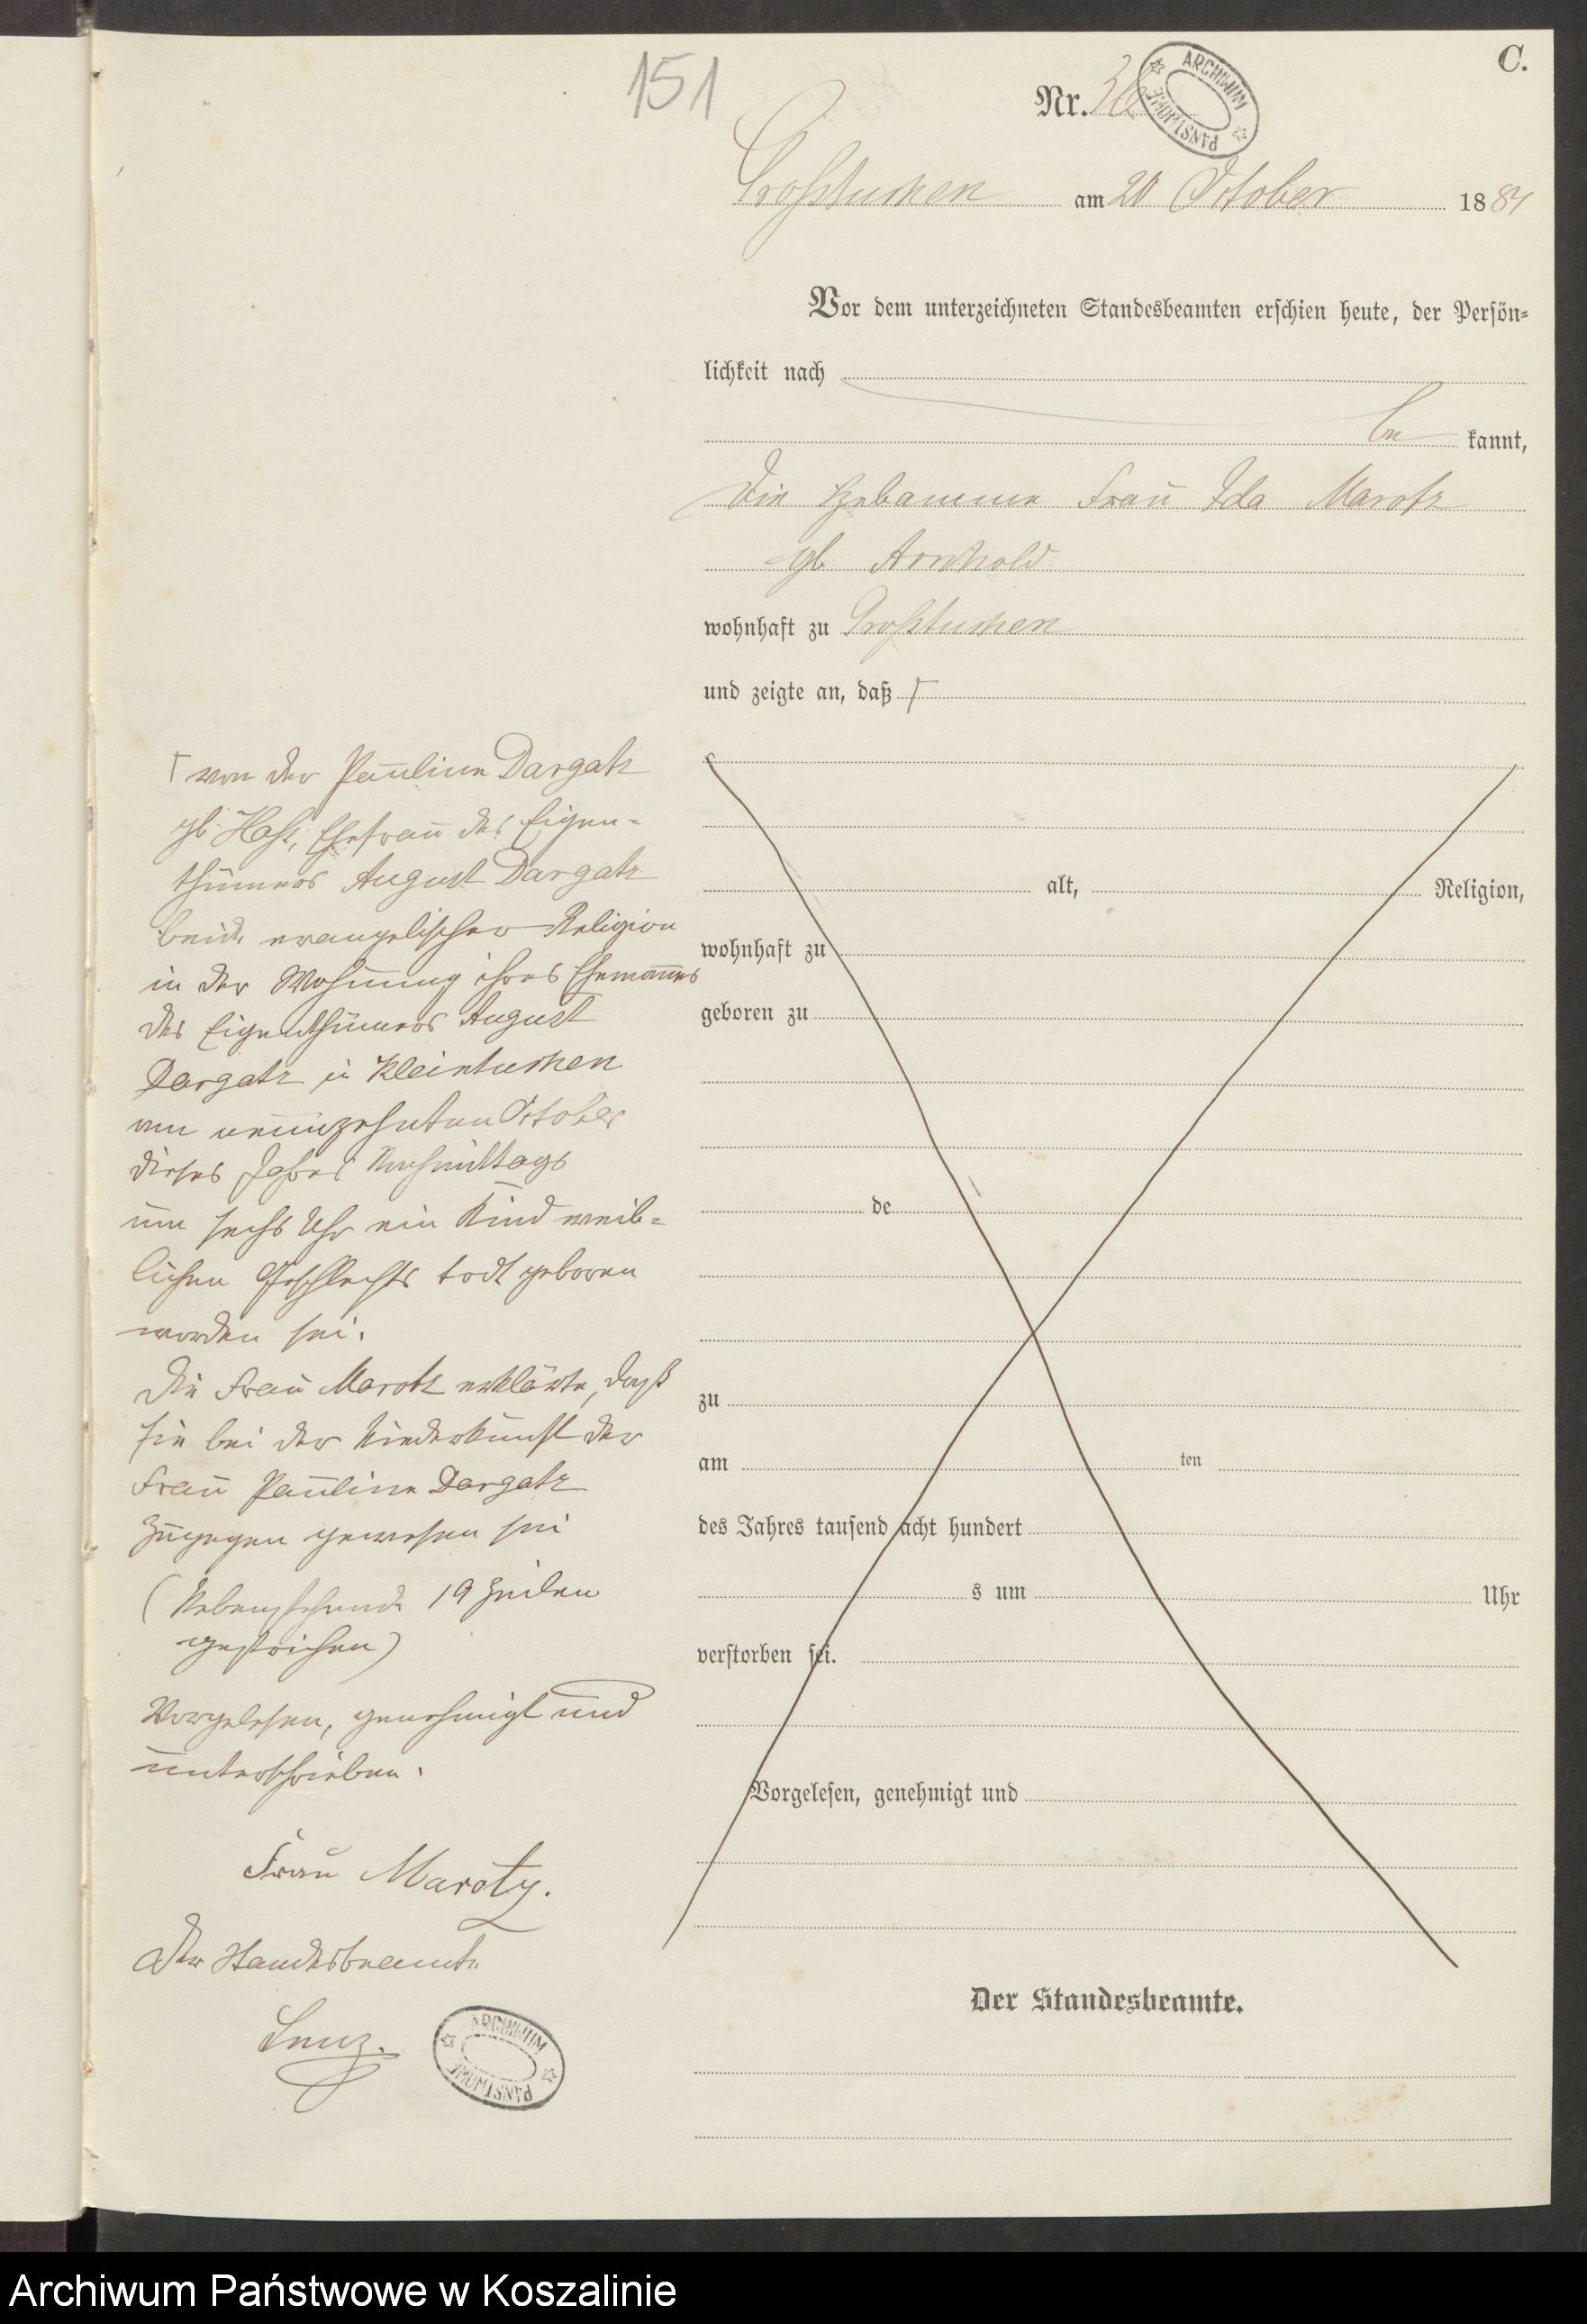 151
C.
Nr. 36
ARCHIWUM PAŃSTWOWE
Großtuchen am 20 October 1884
Vor dem unterzeichneten Standesbeamten erschien heute, der Persön-
lichkeit nach
be kannt,
die Hebamme Frau Ida Marotz
gb Arnhold
wohnhaft zu Großtuchen
und zeigte an, daß ⌈
⌈ von der Pauline Dargatz
gb Haß, Ehefrau des Eigen-
thümers August Dargatz
beide evangelischer Religion
in der Wohnung ihres Ehemannes
des Eigenthümers August
Dargatz in Kleintuchen
am neunzehnten October
dieses Jahres Nachmittags
um sechs Uhr ein Kind weib-
lichen Geschlechts todt geboren
worden sei.
Die Frau Marotz erklärte, daß
sie bei der Niederkunft der
Frau Pauline Dargatz
zugegen gewesen sei
(Nebenstehende 19 Zeilen
gestrichen)
Vorgelesen, genehmigt und
unterschrieben.
Frau Marotz.
Der Standesbeamte
Lenz.
ARCHIWUM PAŃSTWOWE
alt, Religion,
wohnhaft zu
geboren zu
de
zu
am ten
des Jahres tausend acht hundert
s um Uhr
verstorben sei.
Vorgelesen, genehmigt und
Der Standesbeamte.
Archiwum Państwowe w Koszalinie